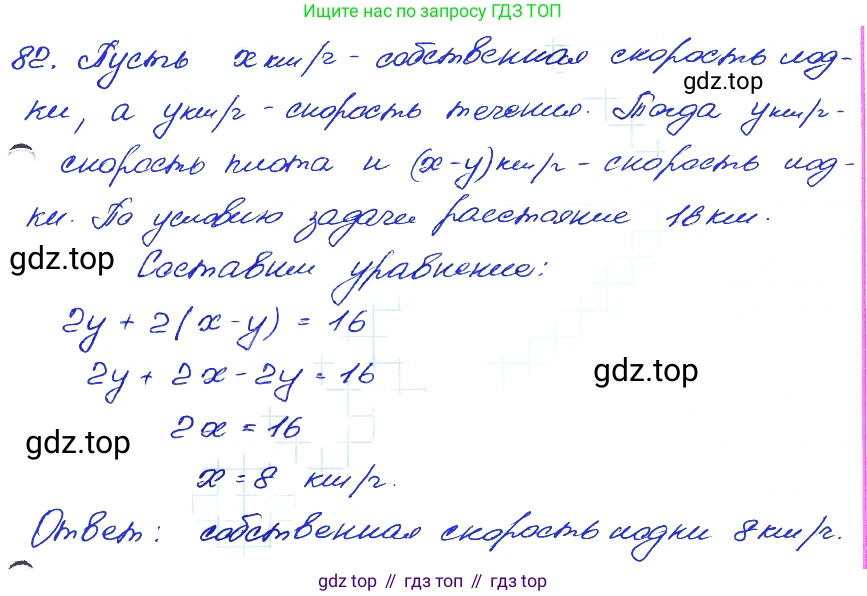 Ищите нас по запросу ГДЗ ТОП
82. Пусть x км/г - собственная скорость лод-
gdz.top
ки, а y км/г - скорость течения. Тогда y км/г -
скорость плота и (x-y) км/г - скорость лод-
ки. По условию задачи расстояние 18 км.
gdz.top
Составим уравнение:
2y + 2(x-y) = 16
2y + 2x - 2y = 16
gdz.top
2x = 16
gdz.top
x = 8 км/г.
Ответ: собственная скорость лодки 8 км/г.
gdz.top // гдз топ // гдз top